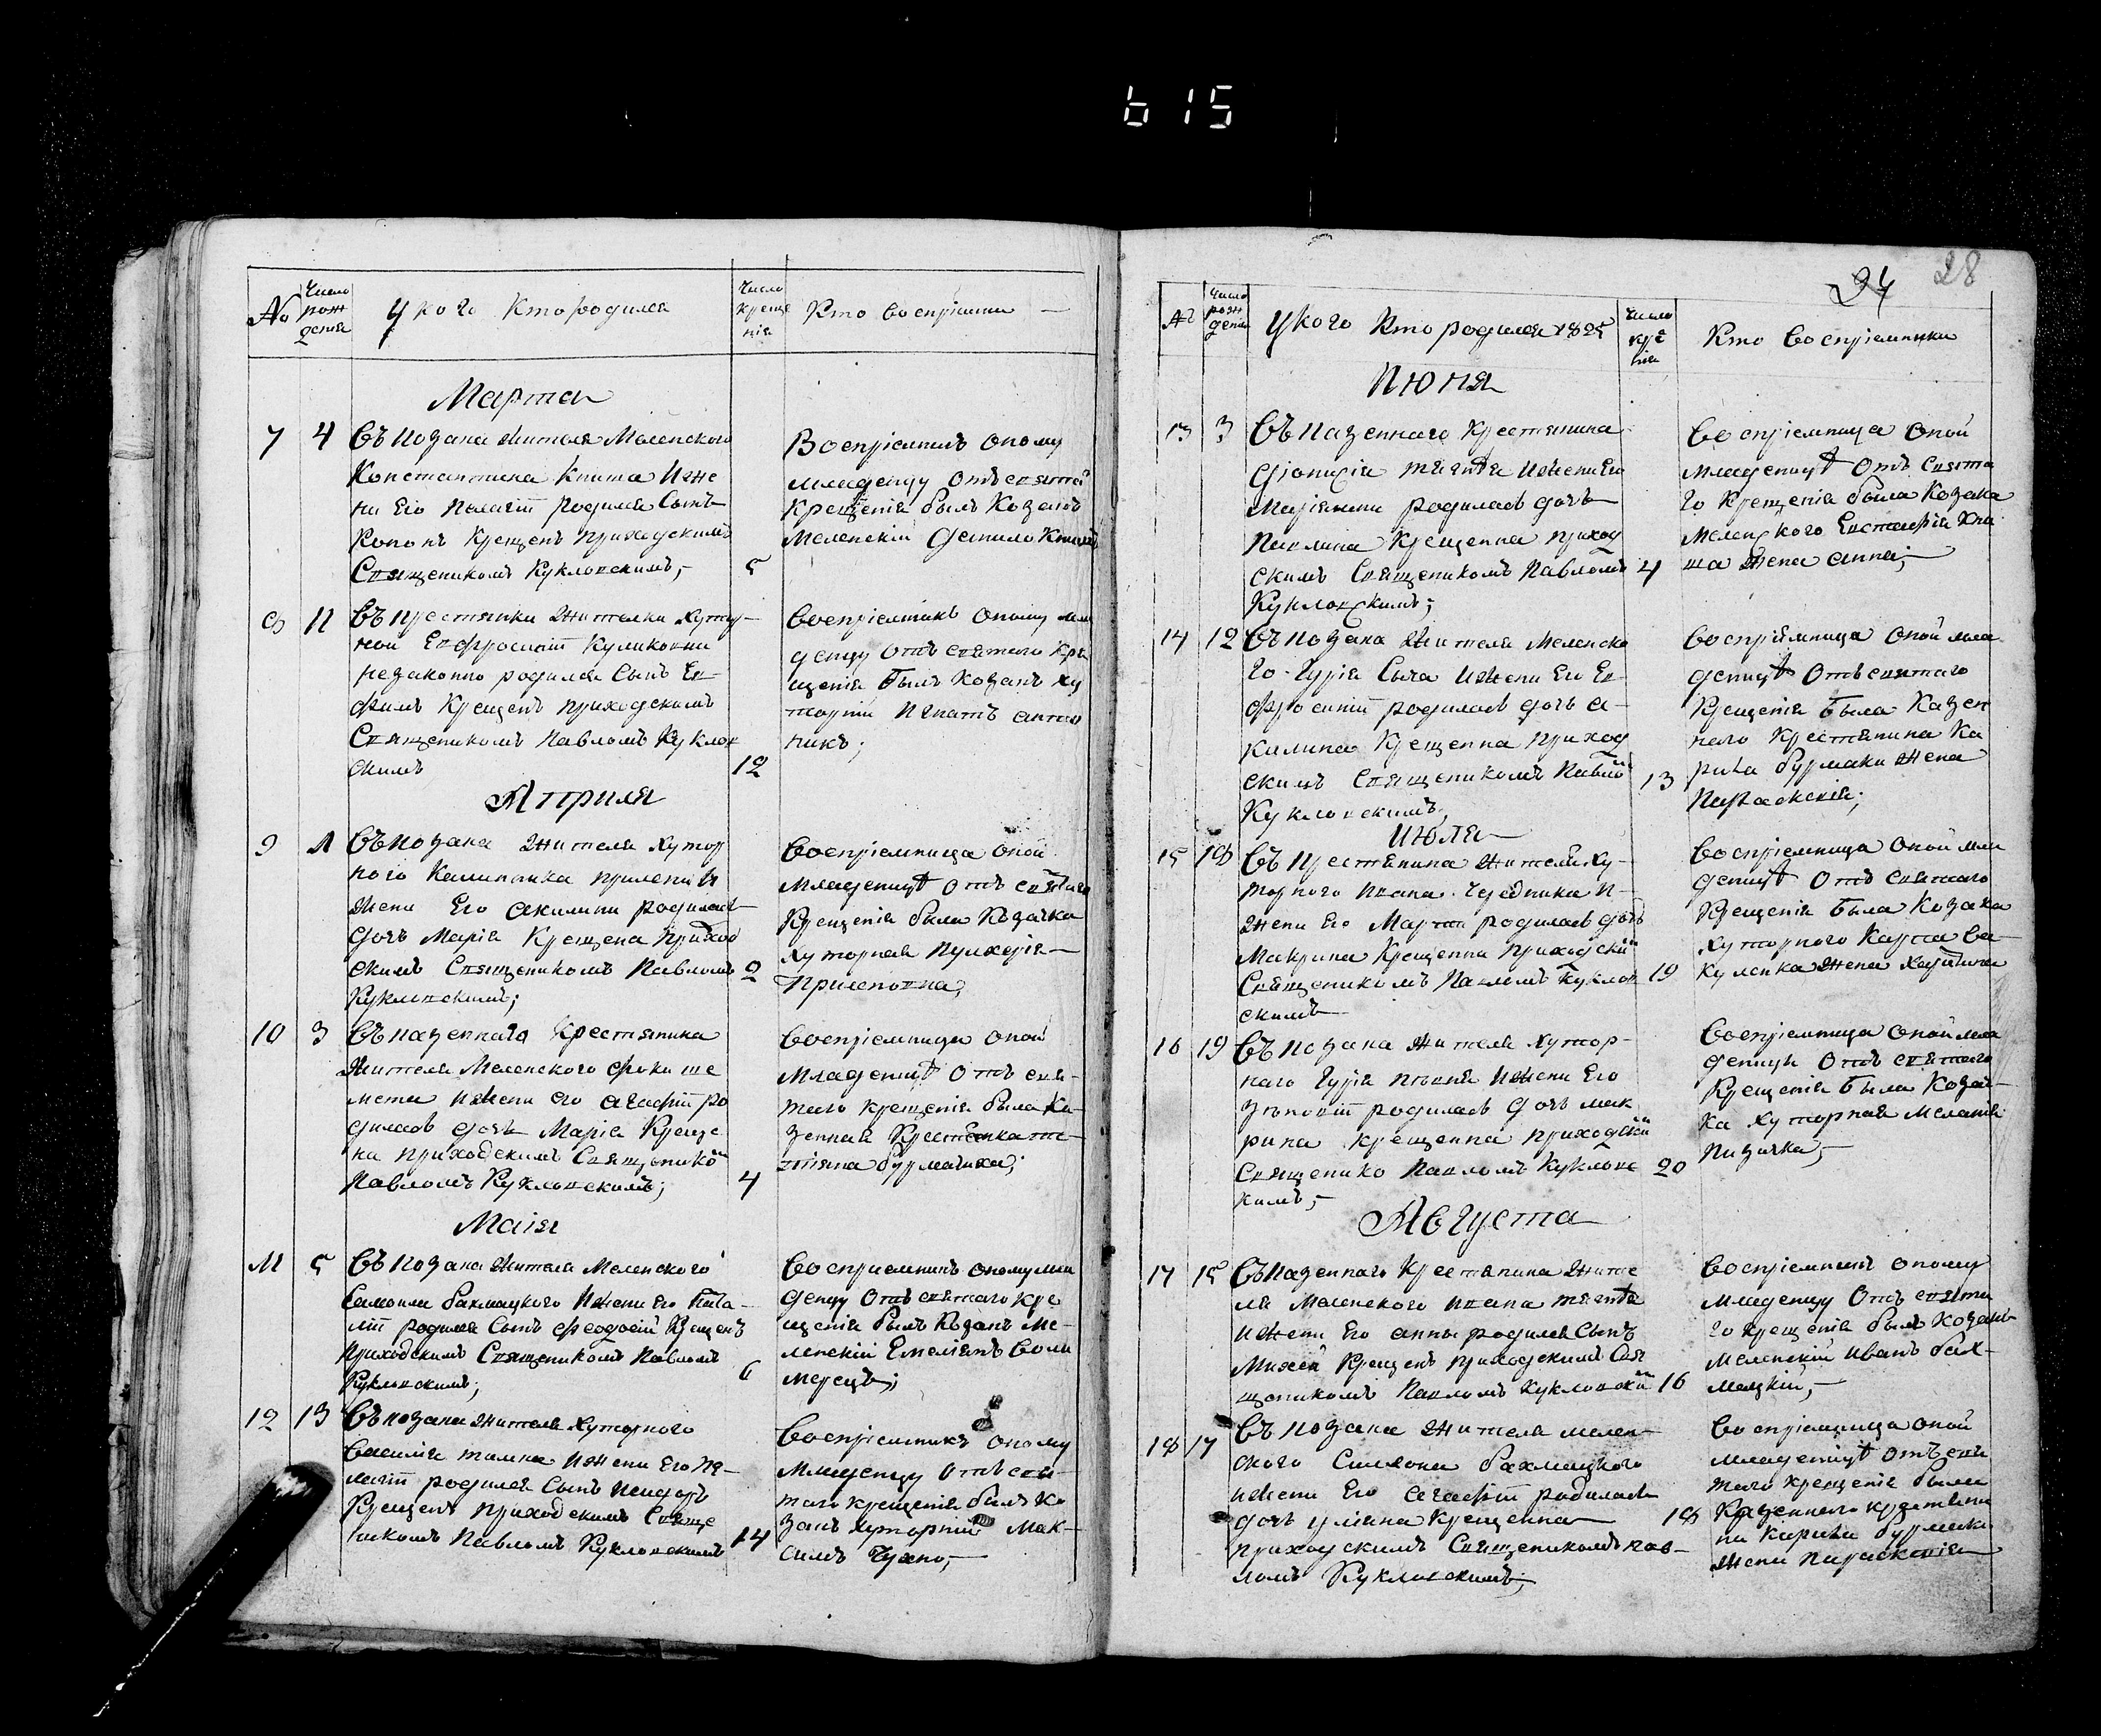 615
28
24
№
Число
рож
денія
У кого Кто родился
Число
креще
нія
Кто воспріемни
Марта
7 4 Въ Козака жителя Меленского
Константина Книша и же
ни Его Пелагѣи родился Сынъ
Конон Крещенъ приходскимъ
Священикомъ Кукловскимъ;
5
Воспріемникъ оному
младенцу Отъ святаг
Крещенія былъ Козакъ
Меленскій Данило Книшъ
8 11 Въ Крестянки жителки Хутор
ной Евфросиніи Куликовни
незаконно родился Сынъ Ев
фимъ Крещенъ приходскимъ
Священикомъ Павломъ Куклов
скимъ
12
воспріемникъ оному мла
денцу Отъ святаго Кре
щенія былъ Козакъ ху
торній Игнатъ
Априля
9 1 Въ Козака жителя Хутор
ного Калинника Прилепи и
жени Его Акилини родилась
дочъ Марія Крещена приход
скимъ Священикомъ Павломъ
Куклвскимъ;
2
воспріемница оной
младеницѣ отъ святаго
Крещенія была Козачка
Хуторная Пулхерія
Прилеповна;
10 3 Въ Казенного Крестянина
Жителя Меленского Фоки ше
мета и жени его Агафіи ро
дилась дочъ Марія Креще
на приходскимъ Священико
Павломъ Куклвскимъ;
4
воспріемница оной
младеницѣ Отъ свя
таго крещенія была Ка
зенная Крестянка та
тіяна бурмачиха;
Маія
11 5 Въ Козака жителя Меленского
Самоили бахмацкого и жени Его Пела
гѣи родился Сынъ Феодосій Крещенъ
приходскимъ Священикомъ Павломъ
Куклвскимъ;
6
воспріемникъ оному мла
денцу Отъ святаго кре
щенія былъ Козакъ Ме
ленскій Емеліянъ Коли
мерецъ;
12 13 Въ Козака жителя Хуторного
Василія и жени Его Пе
лагѣи родился Сынъ Исидоръ
Крещенъ приходскимъ Свяще
никомъ Павломъ Куклвскимъ
14
воспріемникъ оному
младенцу Отъ свя
таго крещенія былъ Ко
закъ Хуторній Мак
симъ Чухно;
№
Число
рож
дени
У кого Кто родился 1825
Число
кре
нія
Кто воспріемники
Июня
13 3 Въ Казенного Крестянина
Діонисія тягтѣя и жени Его
Маріянни родилась дочъ
Павлина Крещенна приход
скимъ Священикомъ Павломъ
Куклвскимъ;
4
воспріемница оной
младеницѣ Отъ свята
го Крещенія была Козака
Меленского Евстафія Кни
ша жена анна;
14 12 Въ Козака жителя Меленско
го Гурія Сыча и жени Его Ев
фросиніи родилась дочъ а
килина Крещенна приход
скимъ Священикомъ Павло
Куклвскимъ,
13
воспріемница оной мла
деницѣ Отъ святаго
Крещенія была Казен
ного Крестянина Ка
рпа бурмаки жена
Параскевія;
июля
15 18 Въ Крестянина жителя Ху
торного Ивана Чередника и
жени Его Марѳи родилась дочъ
Макрина Крещенна приходски
Священикомъ Павломъ Куклов
скимъ
19
воспріемница оной мла
деницѣ Отъ святаго
Крещенія была Козака
Хуторного Карпа ва
куленка жена
16 19 Въ Козака жителя Хутор
ного Гурія и жени Его
Зѣновіи родилась дочъ мак
рина крещенна приходски
Священико Павломъ Куклвс
кимъ,
20
воспріемница оной мла
деници Отъ святаго
Крещенія была Козач
ка Хуторная Меланія
Августа
17 15 Въ Казенного Крестянина жите
ля Меленского Ивана тягтѣя
и жени Его анни родился Сынъ
Михей Крещенъ приходскимъ Свя
щеникомъ Павломъ Куклвски
16
воспріемникъ оному
младенцу Отъ свята
го крещенія былъ Козакъ
Меленскій Иванъ бах
мацкій,
18 17 Въ Козака жителя мелен
ского Симеона бахмацкого
и жени Его Агафіи родилась
дочъ уліяна Крещенна
приходскимъ Священикомъ пав
ломъ Куклвскимъ,
18
воспріемница оной
младеницѣ отъ свя
таго крещенія была
Казенного крестяни
на Карпа бурмаки
жена параскевія